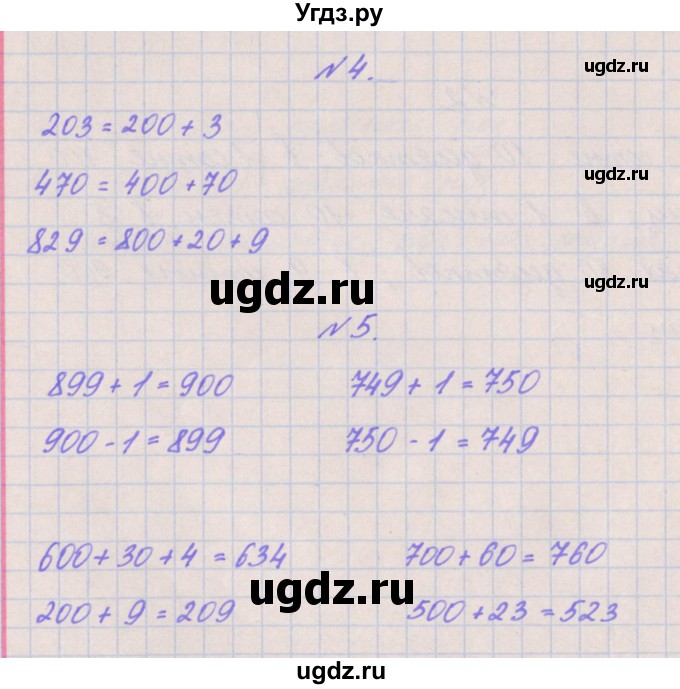 Угдз.ру
ugdz.ru
№ 4.
203 = 200 + 3
ugdz.ru
470 = 400 + 70
829 = 800 + 20 + 9
ugdz.ru
ugdz.ru
№ 5.
899 + 1 = 900 749 + 1 = 750
ugdz.ru
900 - 1 = 899 750 - 1 = 749
ugdz.ru
600 + 30 + 4 = 634 700 + 60 = 760
ugdz.ru
200 + 9 = 209 500 + 23 = 523
ugdz.ru